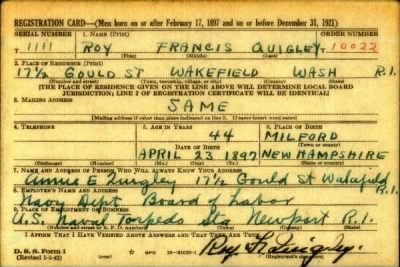 REGISTRATION CARD—(Men born on or after February 17, 1897 and on or before December 31, 1921)
SERIAL NUMBER 1. NAME (Print) ORDER NUMBER
T 1111 ROY FRANCIS QUIGLEY 10022
(First) (Middle) (Last)
2. PLACE OF RESIDENCE (Print)
17½ GOULD ST WAKEFIELD WASH R.I.
(Number and street) (Town, township, village, or city) (County) (State)
[THE PLACE OF RESIDENCE GIVEN ON THE LINE ABOVE WILL DETERMINE LOCAL BOARD
JURISDICTION; LINE 2 OF REGISTRATION CERTIFICATE WILL BE IDENTICAL]
3. MAILING ADDRESS
SAME
[Mailing address if other than place indicated on line 2. If same insert word same]
4. TELEPHONE 5. AGE IN YEARS 6. PLACE OF BIRTH
44 MILFORD
DATE OF BIRTH (Town or county)
APRIL 23 1897 NEW HAMPSHIRE
(Exchange) (Number) (Mo.) (Day) (Yr.) (State or country)
7. NAME AND ADDRESS OF PERSON WHO WILL ALWAYS KNOW YOUR ADDRESS
Annie E Quigley 17½ Gould St Wakefield R.I.
8. EMPLOYER'S NAME AND ADDRESS
Navy Dept Board of Labor
9. PLACE OF EMPLOYMENT OR BUSINESS
U.S. Naval Torpedo Sta Newport R.I.
(Number and street or R. F. D. number) (Town) (County) (State)
I AFFIRM THAT I HAVE VERIFIED ABOVE ANSWERS AND THAT THEY ARE TRUE.
D. S. S. Form 1
(Revised 1-1-42) (over)
Roy F. Quigley
(Registrant's signature)